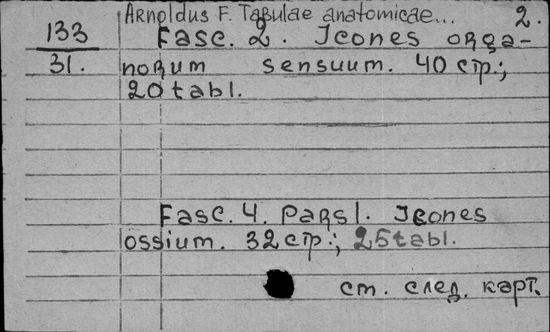 Arnoldus F. Tabulae anatomicae... 2.
133
31.
Fasc. 2. Icones orga-
norum sensuum. 40 стр.;
20 tabl.
Fasc. 4. Pars I. Icones
ossium. 32 стр.; 25 tabl.
см. след. карт.